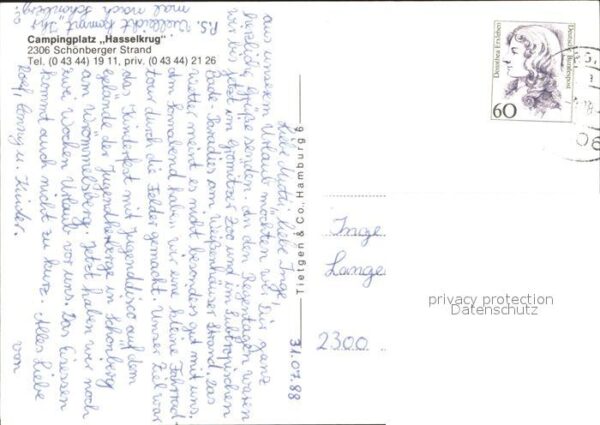 Campingplatz „Hasselkrug"
2306 Schönberger Strand
Tel. (0 43 44) 19 11, priv. (0 43 44) 21 26
31.07.88
Liebe Mutti, liebe Inge,
aus unserem Urlaub möchten wir Dir ganz
herzliche Grüße senden. An den Regentagen waren
wir bis jetzt im Grömitzer Zoo und im Subtropischen
Bade-Paradies am Weißenhäuser Strand. Das
Wetter meint es nicht besonders gut mit uns.
Am Sonnabend haben wir eine kleine Fahrrad
tour durch die Felder gemacht. Unser Ziel war
das Kinderfest mit Jugenddisco auf dem
Gelände der Jugendherberge in Schönberg
am Wrömmelsberg. Jetzt haben wir noch
zwei Wochen Urlaub vor uns. Das Eisessen
kommt auch nicht zu kurz. Alles Liebe
von
Rolf, Conny u. Kinder.
P.S. Vielleicht kommt Ihr
mal nach Schönberg?
Tietgen & Co., Hamburg 6
Deutsche Bundespost
Dorothea Erxleben
60
Inge
Lange
2300
privacy protection
Datenschutz